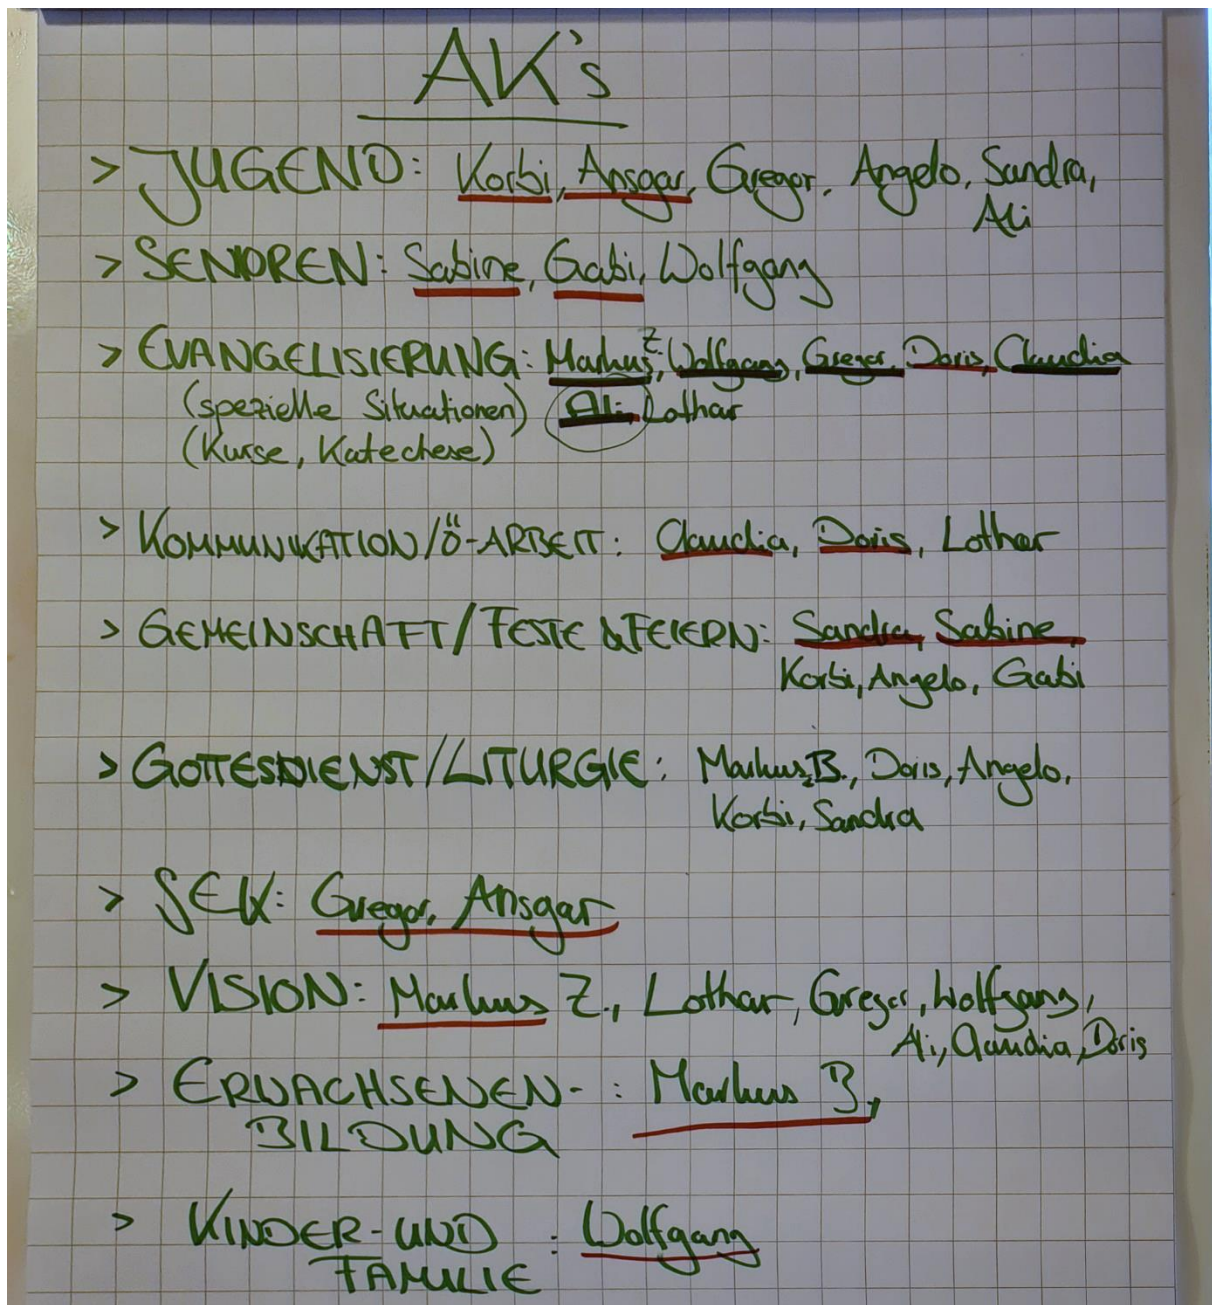 AK's
> JUGEND: Korbi, Ansgar, Gregor, Angelo, Sandra,
Ali
> SENIOREN: Sabine, Gabi, Wolfgang
> EVANGELISIERUNG: Markus Z., Wolfgang, Gregor, Doris, Claudia
(spezielle Situationen) Ali, Lothar
(Kurse, Katechese)
> KOMMUNIKATION/Ö-ARBEIT: Claudia, Doris, Lothar
> GEMEINSCHAFT/FESTE & FEIERN: Sandra, Sabine,
Korbi, Angelo, Gabi
> GOTTESDIENST/LITURGIE: Markus B., Doris, Angelo,
Korbi, Sandra
> SEK: Gregor, Ansgar
> VISION: Markus Z., Lothar, Gregor, Wolfgang,
Ali, Claudia, Doris
> ERWACHSENEN- : Markus B,
BILDUNG
> KINDER-UND : Wolfgang
FAMILIE